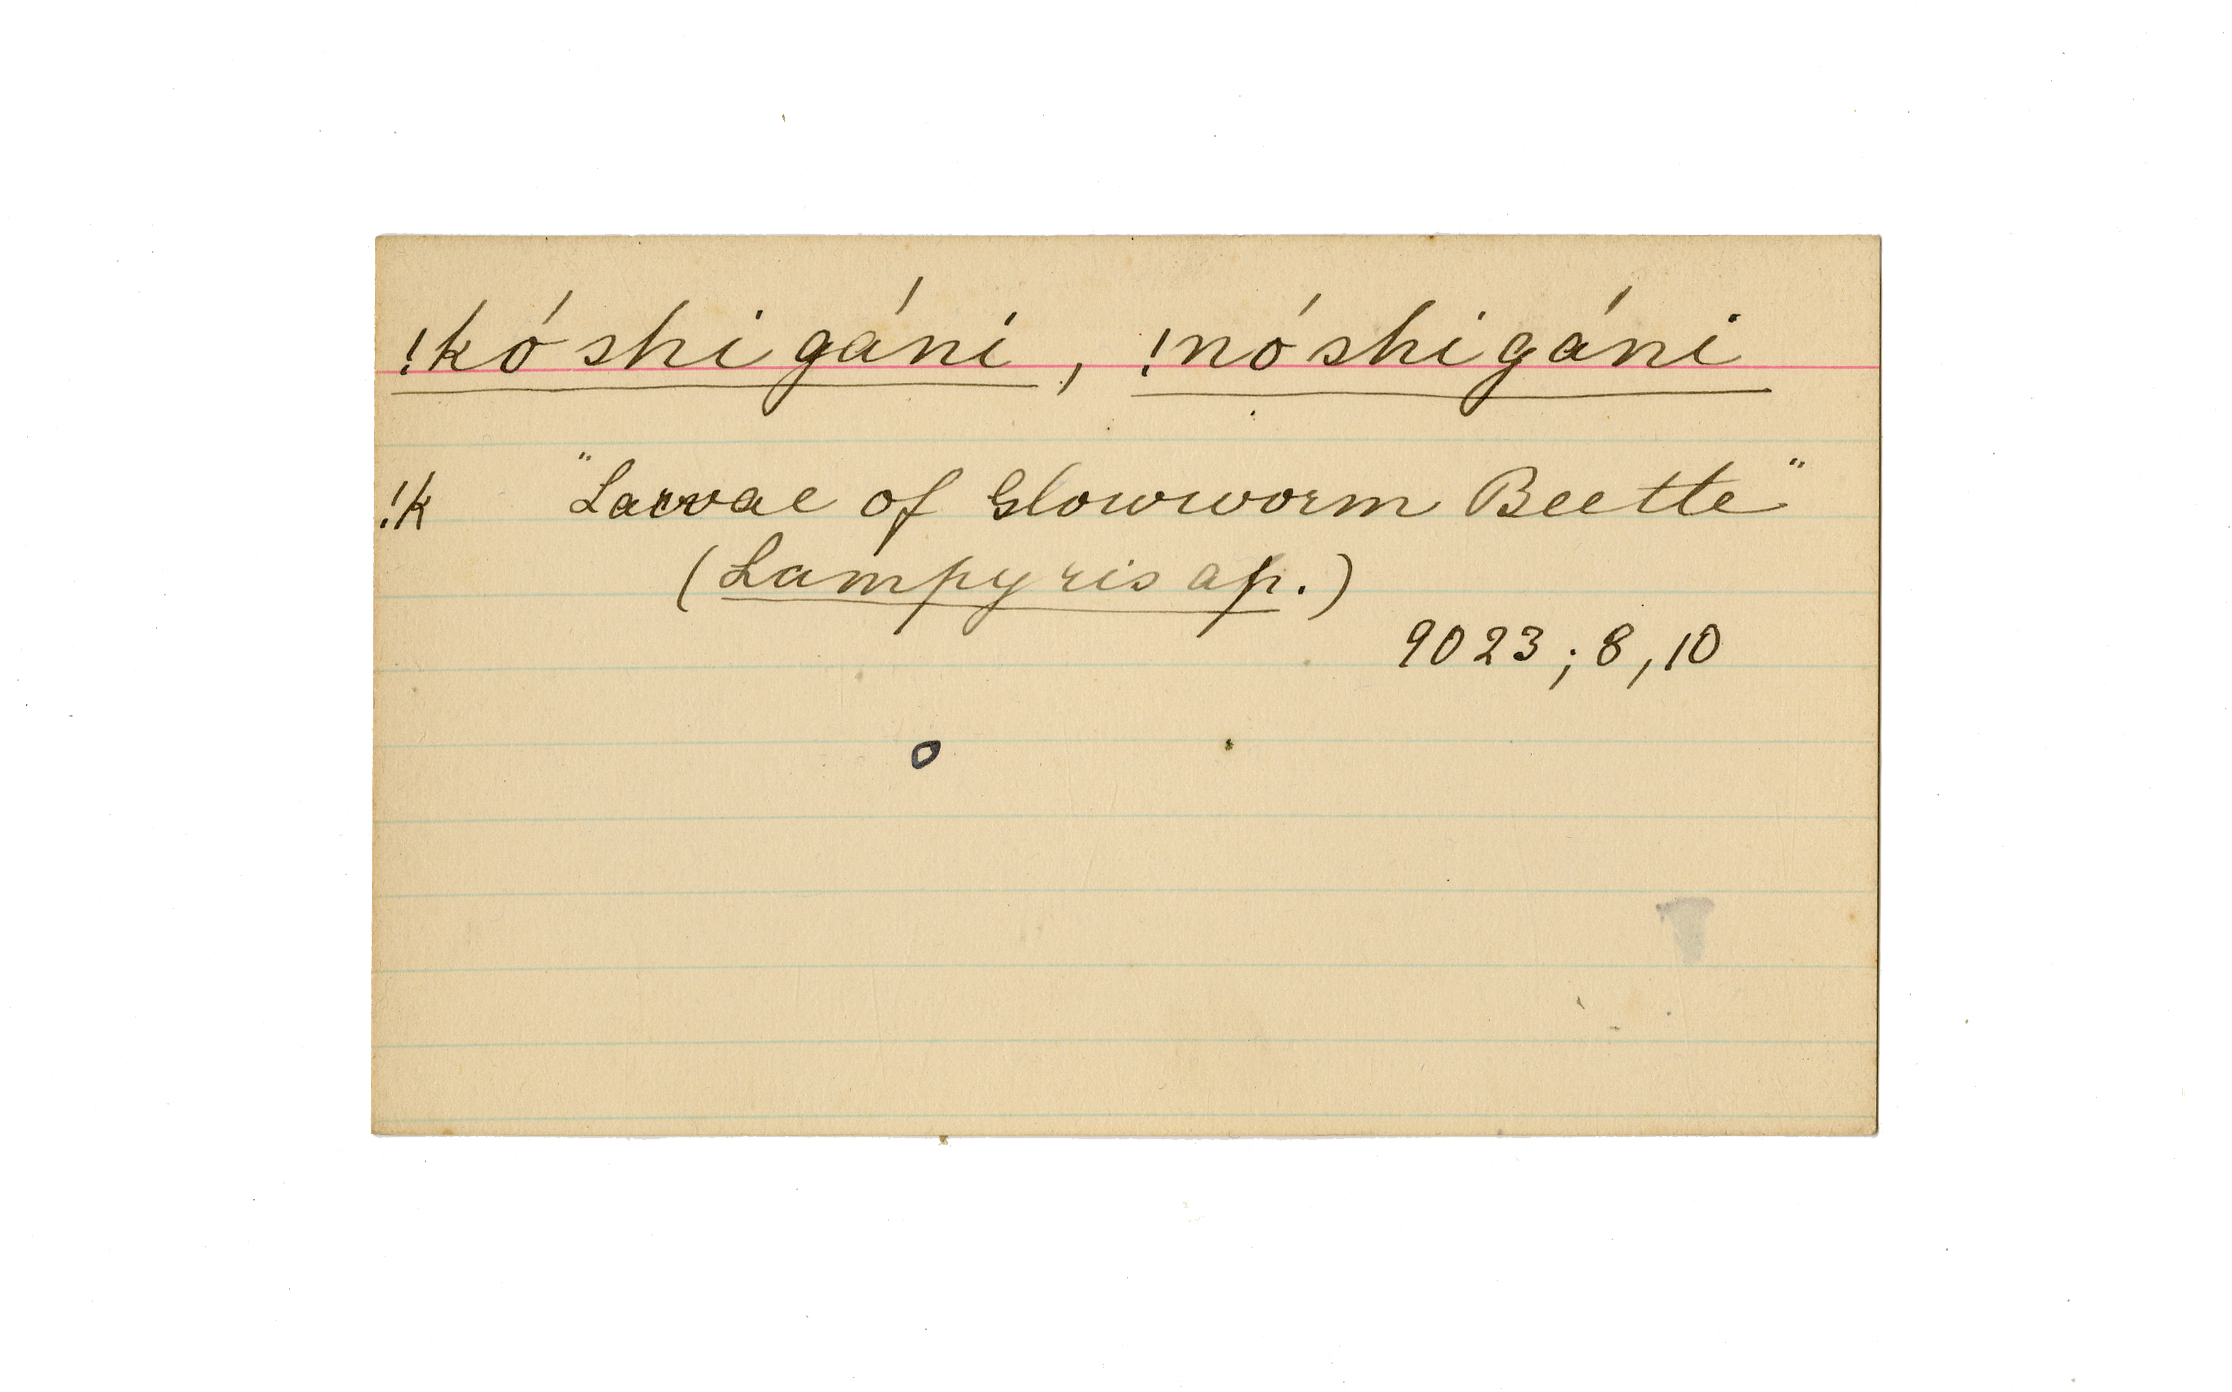 !kóshigáni, !nóshigáni
!k "Larvae of Glowworm Beetle"
(Lampyris sp.)
9023; 8, 10
o